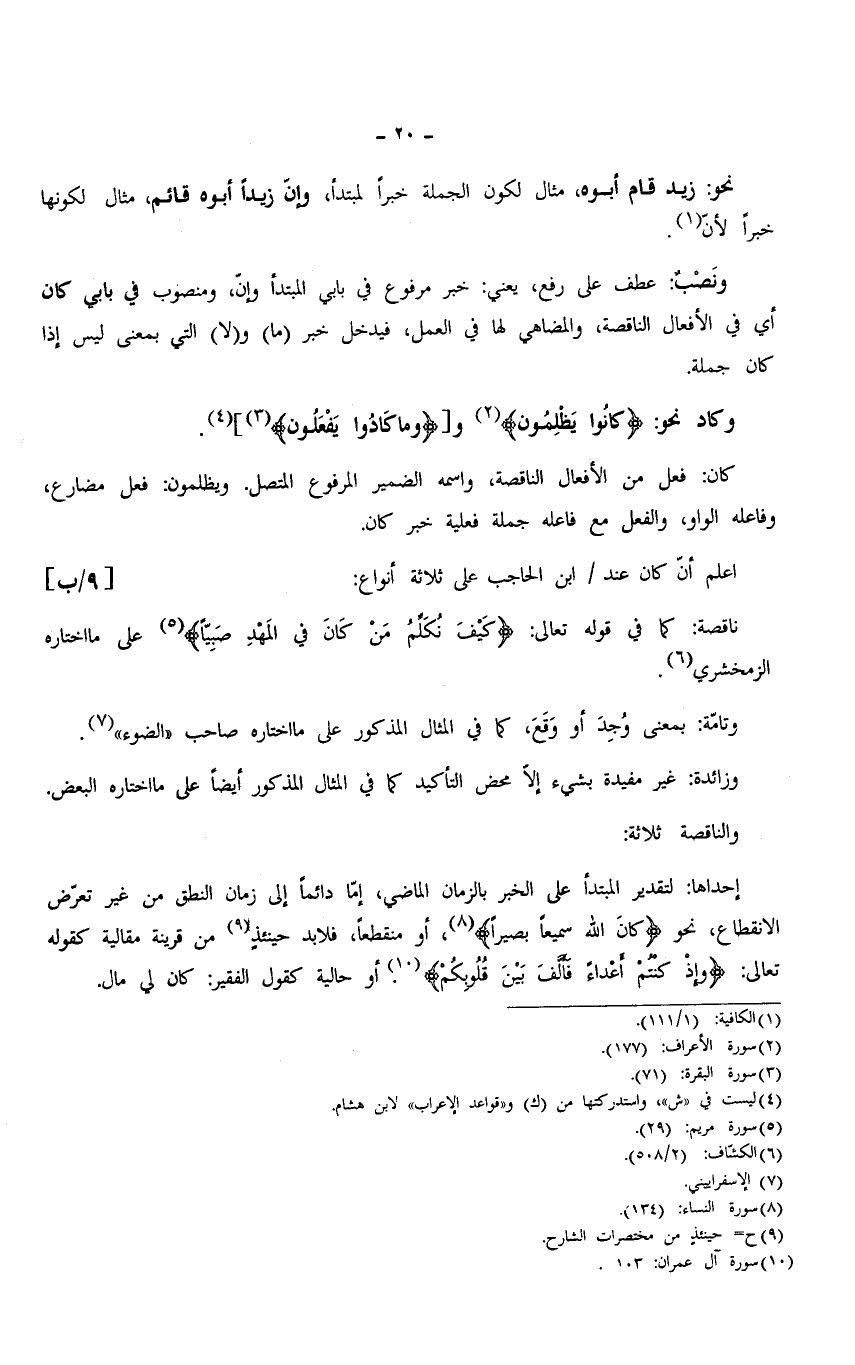 ـ ٢٠ ـ
نحو: زيد قام أبوه، مثال لكون الجملة خبراً لمبتدأ، وإنّ زيداً أبوه قائم، مثال لكونها
خبراً لأنّ(١).
ونَصْبٌ: عطف على رفع، يعني: خبر مرفوع في بابي المبتدأ وإنّ، ومنصوب في بابي كان
أي في الأفعال الناقصة، والمضاهي لها في العمل، فيدخل خبر (ما) و(لا) التي بمعنى ليس إذا
كان جملة.
وكاد نحو: ﴿كانُوا يَظْلِمُون﴾(٢) و[﴿وماكَادُوا يَفْعَلُون﴾(٣)](٤).
كان: فعل من الأفعال الناقصة، واسمه الضمير المرفوع المتصل. ويظلمون: فعل مضارع،
وفاعله الواو، والفعل مع فاعله جملة فعلية خبر كان.
اعلم أنّ كان عند / ابن الحاجب على ثلاثة أنواع: [٩/ب]
ناقصة: كما في قوله تعالى: ﴿كَيْفَ نُكَلِّمُ مَنْ كَانَ في المَهْدِ صَبِيّاً﴾(٥) على مااختاره
الزمخشري(٦).
وتامّة: بمعنى وُجِدَ أو وَقَعَ، كما في المثال المذكور على مااختاره صاحب «الضوء»(٧).
وزائدة: غير مفيدة بشيء إلاّ محض التأكيد كما في المثال المذكور أيضاً على مااختاره البعض.
والناقصة ثلاثة:
إحداها: لتقدير المبتدأ على الخبر بالزمان الماضي، إمّا دائماً إلى زمان النطق من غير تعرّض
الانقطاع، نحو ﴿كانَ الله سميعاً بصيراً﴾(٨)، أو منقطعاً، فلابد حينئذٍ(٩) من قرينة مقالية كقوله
تعالى: ﴿وإذْ كنْتُمْ أَعْداءً فَأَلَّفَ بَيْنَ قُلُوبِكُمْ﴾(١٠). أو حالية كقول الفقير: كان لي مال.
(١) الكافية: (١/١١١).
(٢) سورة الأعراف: (١٧٧).
(٣) سورة البقرة: (٧١).
(٤) ليست في «ش»، واستدركتها من (ك) و«قواعد الإعراب» لابن هشام.
(٥) سورة مريم: (٢٩).
(٦) الكشّاف: (٥٠٨/٢).
(٧) الإسفراييني.
(٨) سورة النساء: (١٣٤).
(٩) ح= حينئذٍ من مختصرات الشارح.
(١٠) سورة آل عمران: ١٠٣ .